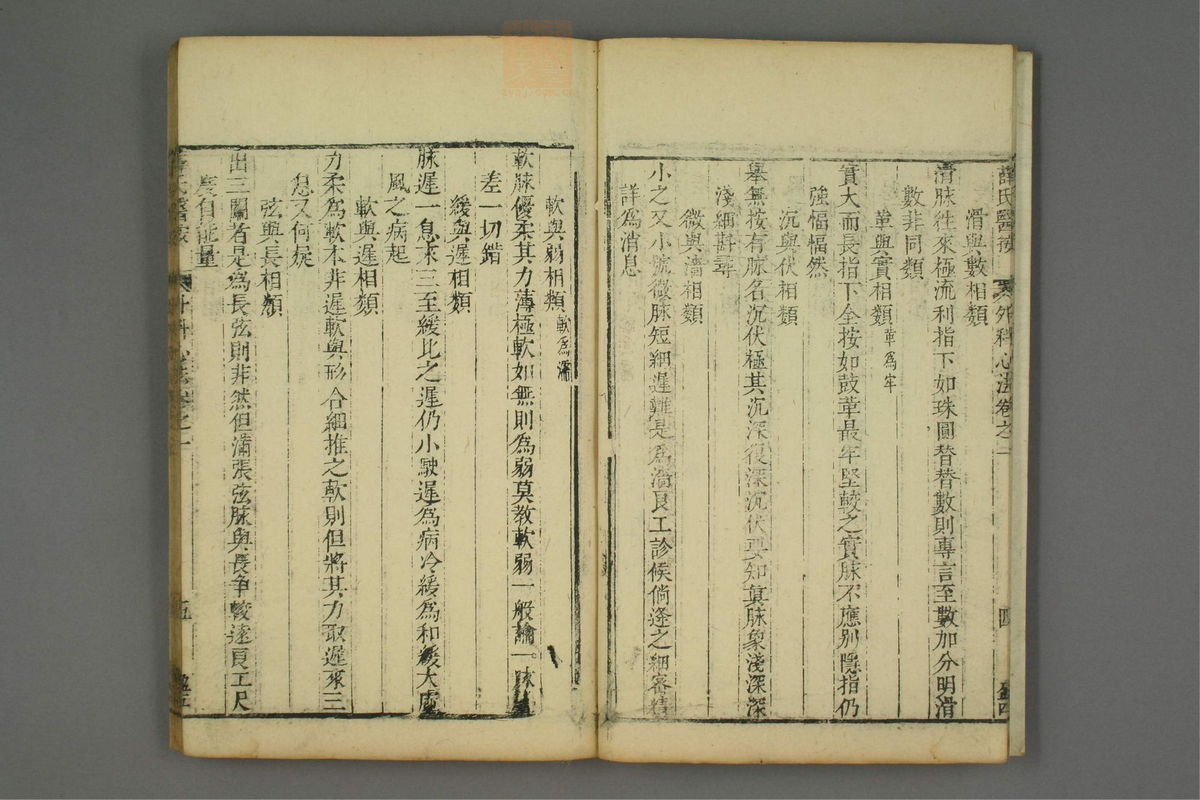 薛氏醫按 外科心法卷之二 四
滑與數相類
滑脉徃來極流利指下如珠圓替替數則專言至數加分明滑
數非同類
革與實相類革爲牢
實大而長指下全按如鼓革最牢堅較之實脉不應别隱指仍
強愊愊然
沉與伏相類
舉無按有脉名沉伏極其沉深復深沉伏要知眞脉象淺深深
淺細斟尋
微與濇相類
小之又小號微脉短細遲難是爲濇良工診候倘逢之細密精
詳爲消息
軟與弱相類軟爲濡
軟脉優柔其力薄極軟如無則爲弱莫教軟弱一般論一脉
差一切錯
緩與遲相類
脉遲一息來三至緩比之遲仍小駛遲爲病冷緩爲和緩大處
風之病起
軟與遲相類
力柔爲軟本非遲軟與形合細推之軟則但將其力取遲來三
息又何疑
弦與長相類
出三關者是爲長弦則非然但滿張弦脉與長争較遠良工尺
度自能量
五